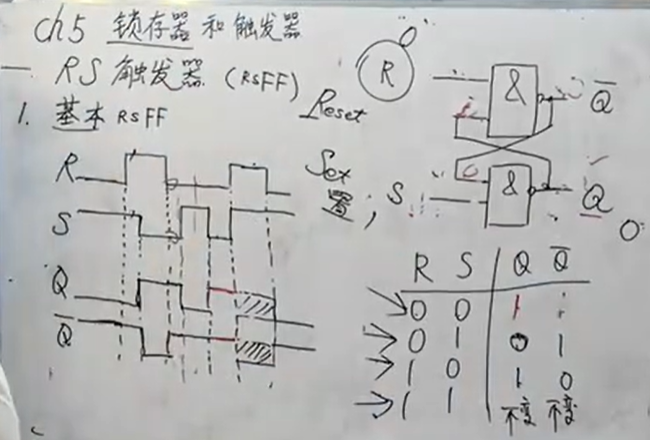 ch5 锁存器 和 触发器
一 RS 触发器 (RSFF)
1. 基本 RSFF
R
S
Q
Q̅
R
0
Reset
Set
置
;
S
&
Q̅
&
Q
0
R S Q Q̅
0 0 1 1
0 1 0 1
1 0 1 0
1 1 不变 不变